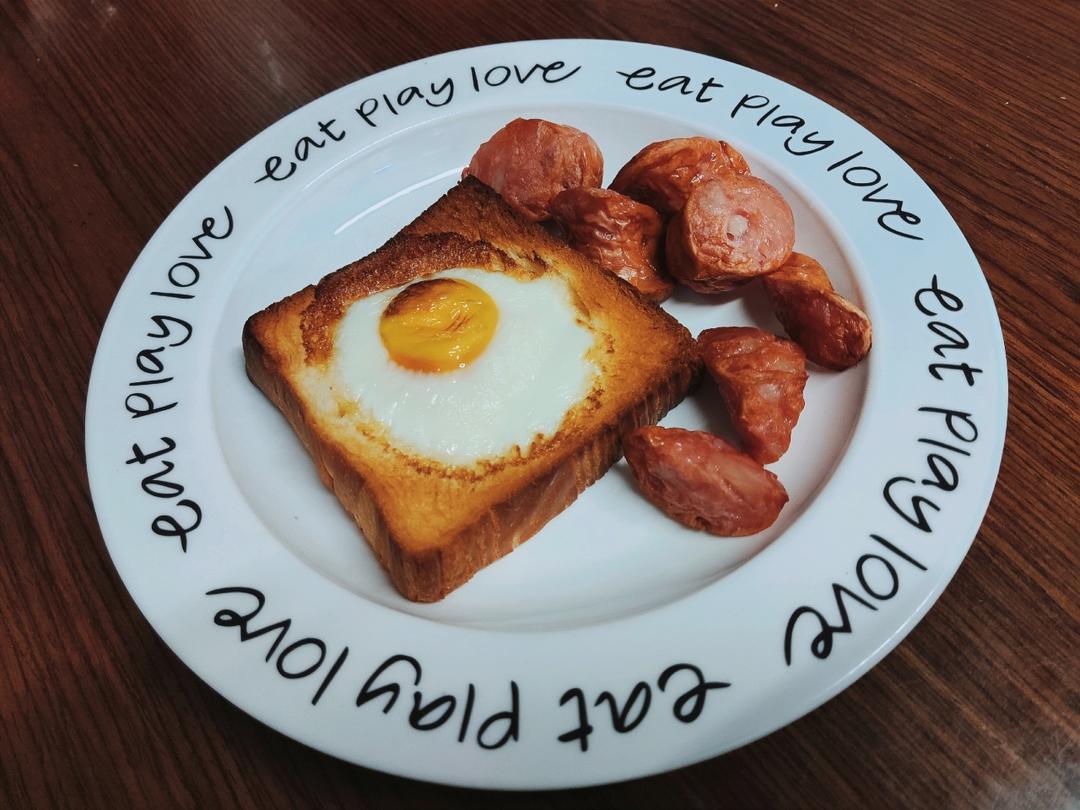 eat play love
eat play love
eat play love
eat play love
eat play love